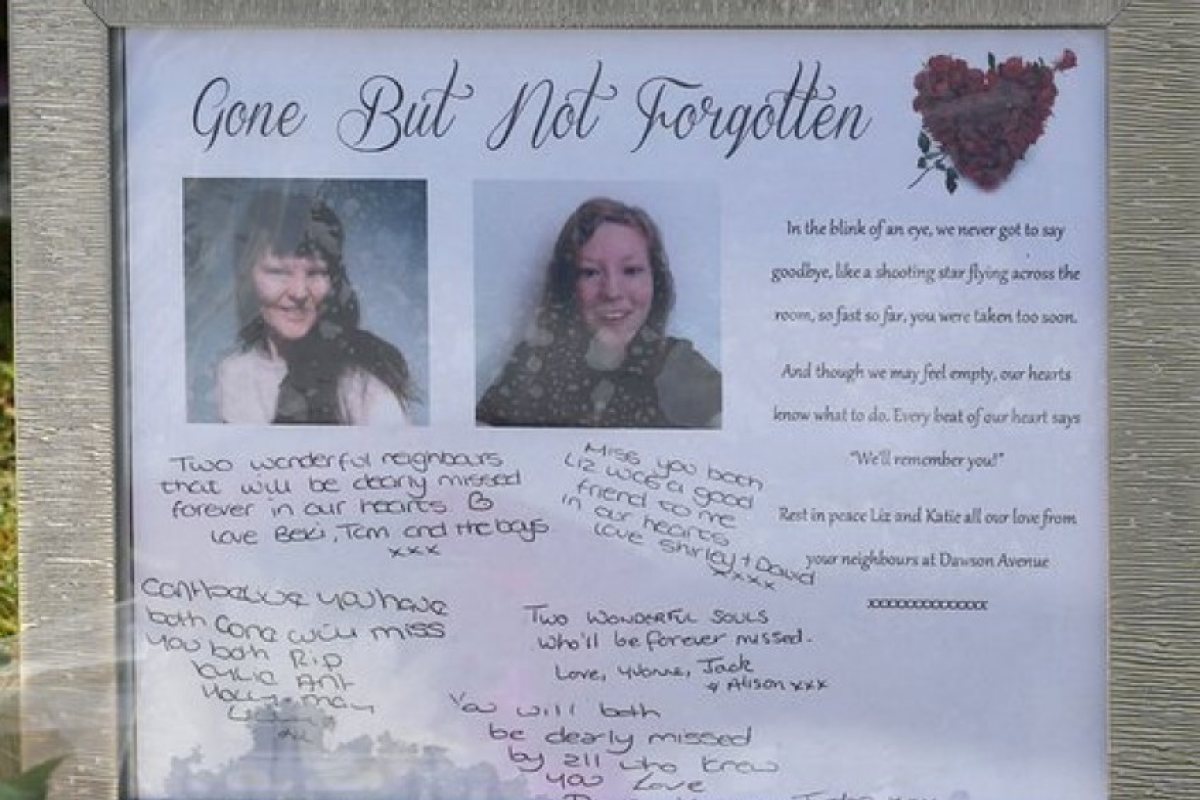 Gone But Not Forgotten
In the blink of an eye, we never got to say
goodbye, like a shooting star flying across the
room, so fast so far, you were taken too soon.
And though we may feel empty, our hearts
know what to do. Every beat of our heart says
"We'll remember you!"
Rest in peace Liz and Katie all our love from
your neighbours at Dawson Avenue
xxxxxxxxxxxxxxx
Two wonderful neighbours
that will be dearly missed
forever in our hearts
Love Beki, Tom and the boys
xxx
Miss you both
Liz was a good
friend to me
in our hearts
love Shirley + David
xxxx
Cant believe you have
both Gone will miss
you both Rip
Kylie Ant
Holly-may
Two Wonderful souls
who'll be forever missed.
Love, Yvonne, Jack
& Alison xxx
You will both
be dearly missed
by all who knew
you Love